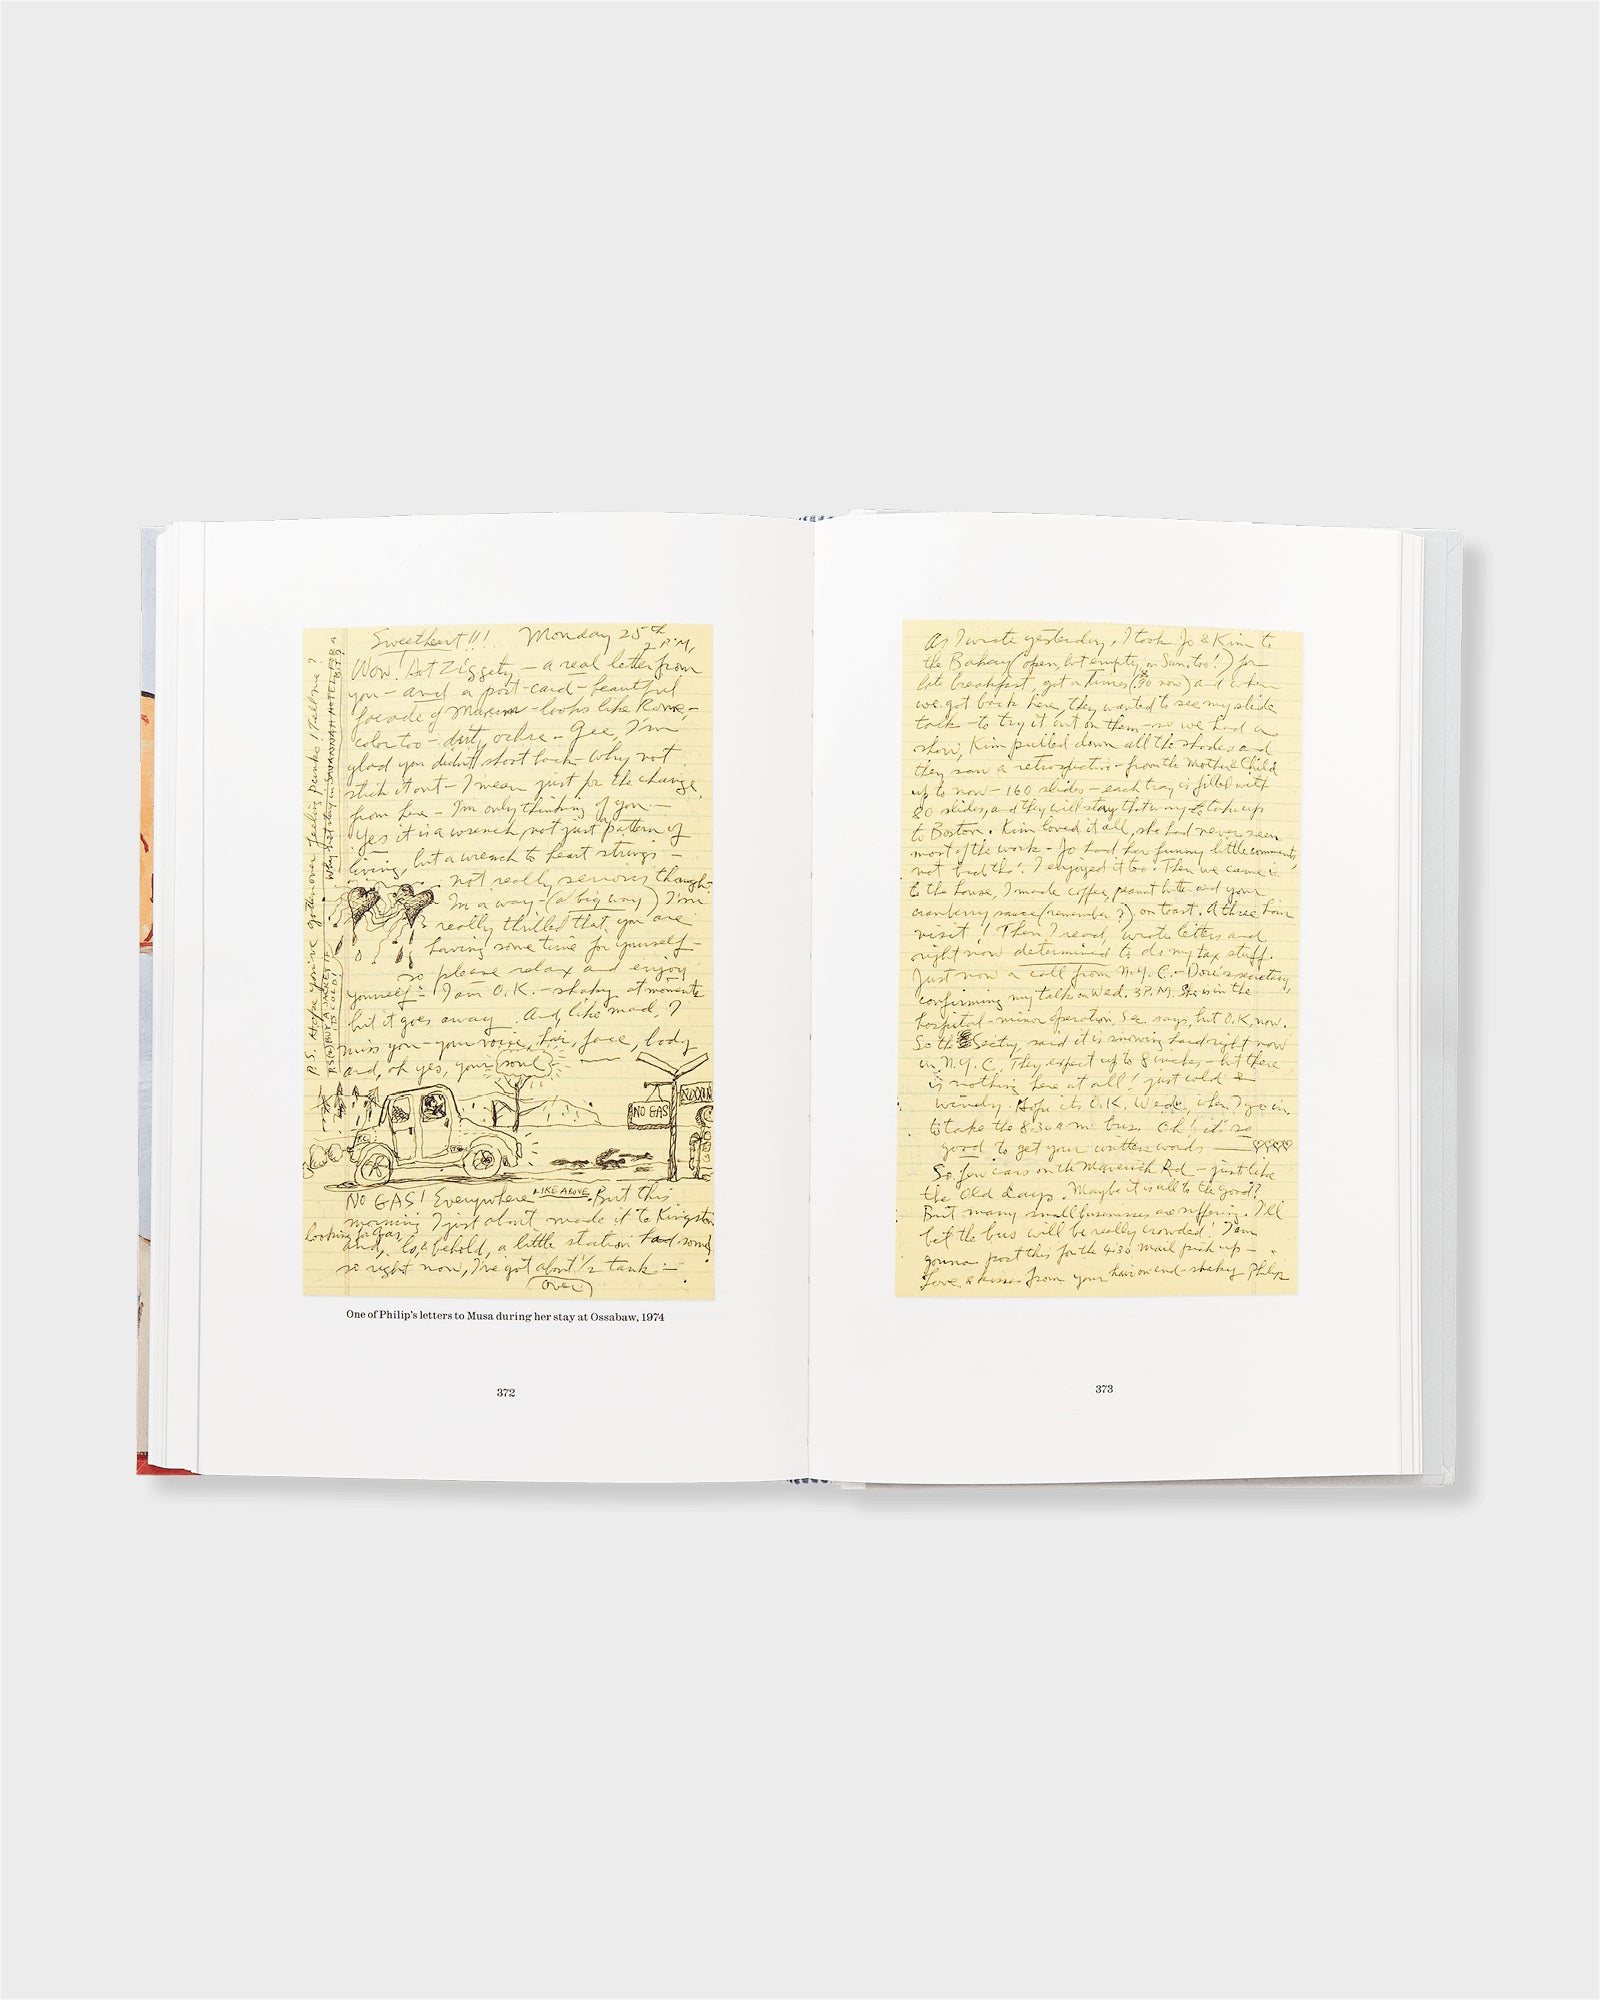 Sweetheart!!! Monday 25th
2 P.M.
Wow! Hot Ziggety — a real letter from
you — and a post-card — beautiful
facade of — looks like Rome —
color too — dirty ochre — Gee, I'm
glad you didn't shoot back — why not
stick it out — I mean just for the change
from here — I'm only thinking of you —
Yes it is a wrench, not just pattern of
living, but a wrench to heart strings —
not really serious though.
In a way — (a big way) I'm
really thrilled that you are
having some time for yourself —
so please relax and enjoy
yourself. I am O.K. — shaky at moments
but it goes away. And, like mad, I
miss you — your voice, hair, face, body
and, oh yes, your soul
NO GAS
NO GAS! Everywhere LIKE ABOVE. But this
morning I just about made it to Kingston
looking for gas,
and, lo, & behold, a little station had some
so right now, I've got about 1/2 tank —
(over)
P.S. Hope you've gotten over feeling punko! Tell me?
Why not stay in SAVANNAH HOTEL FOR A
BIT?
P.S.(2) BUY A JACKET IF
ITS COLD!
One of Philip's letters to Musa during her stay at Ossabaw, 1974
372
As I wrote yesterday, I took Jo & Kim to
the Bakery (open, but empty on Sun. too!) for
late breakfast, got a Times (.90 now) and when
we got back here, they wanted to see my slide
talk — to try it out on them — so we had a
show, Kim pulled down all the shades and
they saw a retrospective — from the Mother & Child
up to now — 160 slides — each tray is filled with
80 slides, and they will stay that way to take up
to Boston. Kim loved it all, she had never seen
most of the work — Jo had her funny little comments,
not bad tho'. I enjoyed it too. Then we came
to the house, I made coffee, peanut butter and your
cranberry sauce (remember?) on toast. A three hour
visit! Then I read, wrote letters and
right now determined to do my tax stuff.
Just now a call from N.Y.C. — Dore's secretary,
confirming my talk on Wed. 3 P.M. She is in the
hospital — minor operation, Sec says, but O.K. now.
So the Sec'ty, said it is snowing hard right now
in N.Y.C. They expect up to 8 inches — but there
is nothing here at all! just cold &
windy. Hope its O.K. Wed., when I go in
to take the 8:30 a.m. bus. Oh! it's so
good to get your written words —
So few cars on the Maverick Rd — just like
the old days. Maybe it is all to the good?
But many small businesses are suffering. I'll
bet the bus will be really crowded! I am
gonna post this for the 4:30 mail pick up —
Love & kisses from your hair on end — shaky Philip
373